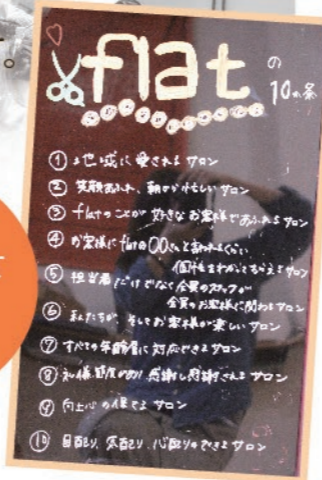 flat の
10ヵ条
① 地域に愛されるサロン
② 笑顔あふれ、朝から忙しいサロン
③ flatのことが好きなお客様であふれるサロン
④ お客様にflatの〇〇さんと言われるくらい
個性をわかってもらえるサロン
⑤ 担当者だけでなく全員のスタッフが
全員のお客様に関わるサロン
⑥ 私たちが、そしてお客様が楽しいサロン
⑦ すべての年齢層に対応できるサロン
⑧ 礼儀 感謝し感謝されるサロン
⑨ 向上心の サロン
⑩ 目配り、気配り、心配りのできるサロン